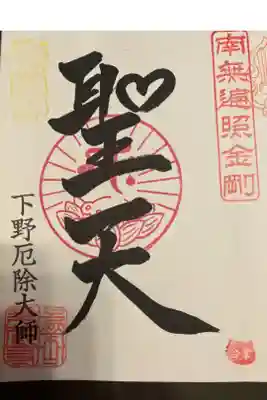 南無遍照金剛
聖天
下野厄除大師